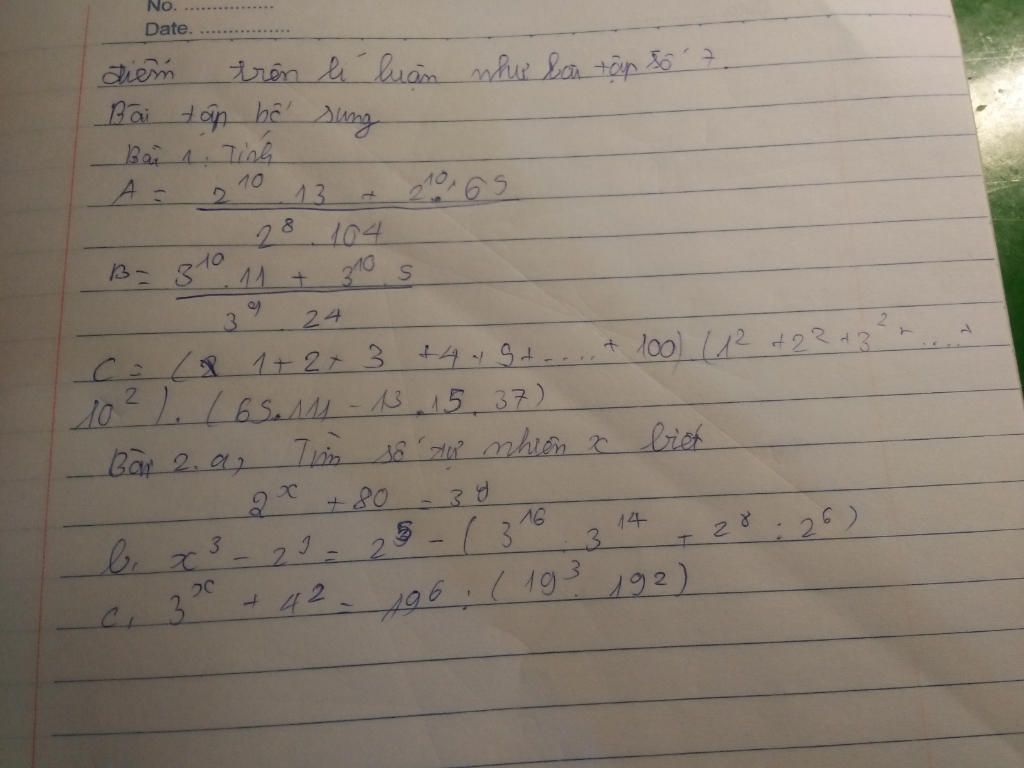 No. ................
Date. ................
điểm trên lí luận như bài tập số 7.
Bài tập bổ sung
Bài 1: Tính
A = \frac{2^{10} . 13 + 2^{10} . 65}{2^8 . 104}
B = \frac{3^{10} . 11 + 3^{10} . 5}{3^9 . 24}
C = ( 1 + 2 + 3 + 4 + 9 + ..... + 100) (1^2 + 2^2 + 3^2 + ..... +
10^2 ) . ( 65.111 - 13 . 15 . 37)
Bài 2. a, Tìm số tự nhiên x biết
2^x + 80 = 3^y
b, x^3 - 2^3 = 2^5 - ( 3^{16} : 3^{14} + 2^8 : 2^6 )
c, 3^x + 4^2 = 19^6 : ( 19^3 . 19^2 )